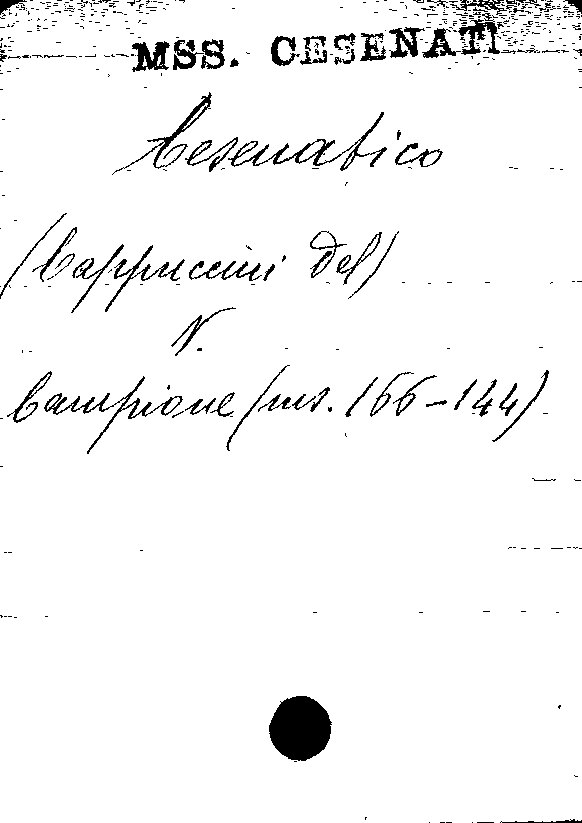 MSS. CESENATI
Cesenatico
(Cappuccini del)
V.
Campione (ms. 166-144)